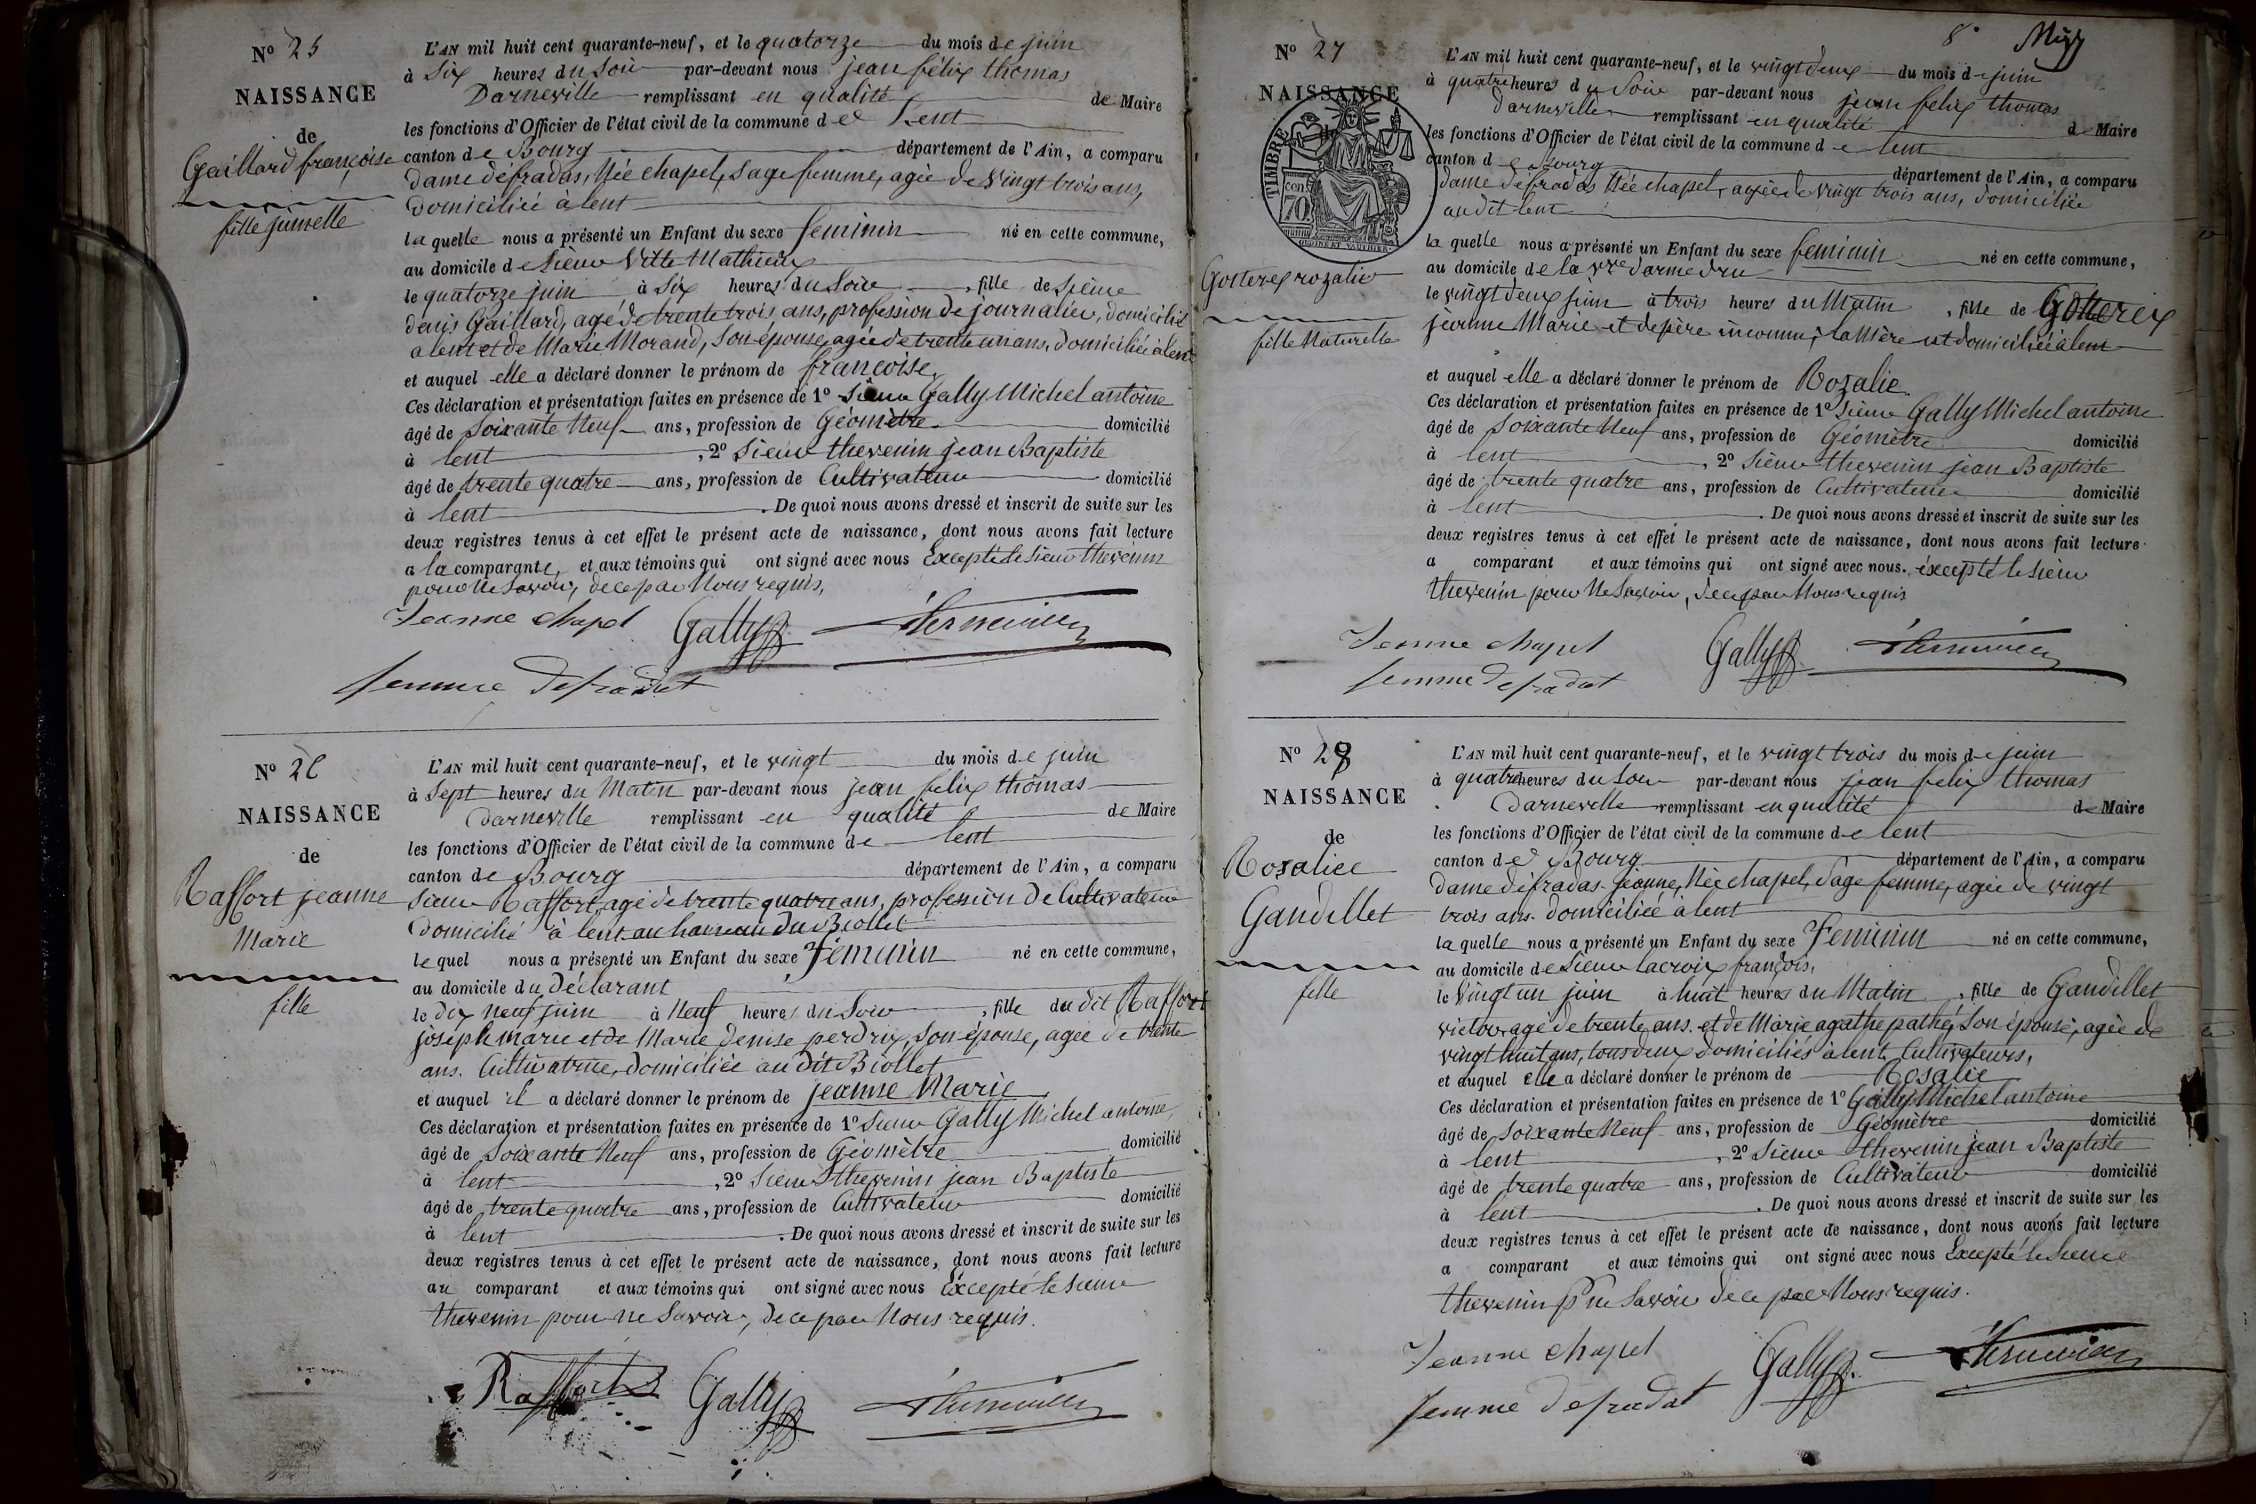 N° 25
NAISSANCE
de
Gaillard françoise
fille jumelle
L'AN mil huit cent quarante-neuf, et le quatorze du mois de juin
à Six heures du Soir par-devant nous jean félix thomas
Darneville remplissant en qualité de Maire
les fonctions d'Officier de l'état civil de la commune de Lent
canton de Bourg département de l'Ain, a comparu
dame défradas, Née chapel, Sage femme, agée de Vingt trois ans,
domiciliée à lent
la quelle nous a présenté un Enfant du sexe feminin né en cette commune,
au domicile de Sieur Vitte Mathieu
le quatorze juin à Six heures du Soir, fille de Sieur
denis Gaillard, agé de trente trois ans, profession de journalier, domicilié
a lent et de Marie Morand, Son épouse, agée de trente un ans, domiciliée à lent
et auquel elle a déclaré donner le prénom de françoise.
Ces déclaration et présentation faites en présence de 1° Sieur Gally Michel antoine
âgé de Soixante Neuf ans, profession de Géomètre domicilié
à lent, 2° Sieur thevenin jean Baptiste
âgé de trente quatre ans, profession de Cultivateur domicilié
à lent. De quoi nous avons dressé et inscrit de suite sur les
deux registres tenus à cet effet le présent acte de naissance, dont nous avons fait lecture
a la comparante, et aux témoins qui ont signé avec nous Excepté le Sieur thevenin
pour Ne Savoir, de ce par Nous requis.
Jeanne chapel
Gally
femme defradat
N° 26
NAISSANCE
de
Raffort jeanne
Marie
fille
L'AN mil huit cent quarante-neuf, et le vingt du mois de juin
à Sept heures du Matin par-devant nous jean felix thomas
Darneville remplissant en qualité de Maire
les fonctions d'Officier de l'état civil de la commune de lent
canton de Bourg département de l'Ain, a comparu
Sieur Raffort, agé de trente quatre ans, profession de Cultivateur
Domicilié à lent au hameau du Biollet
le quel nous a présenté un Enfant du sexe Féminin né en cette commune,
au domicile du Déclarant
le dix neuf juin à Neuf heures du Soir, fille du dit Raffort
joseph marie et de Marie denise perdrix, Son épouse, agée de trente
ans. Cultivatrice, domiciliée au dit Biollet
et auquel il a déclaré donner le prénom de jeanne Marie
Ces déclaration et présentation faites en présence de 1° Sieur Gally Michel antoine,
âgé de Soixante Neuf ans, profession de Géomètre domicilié
à lent, 2° Sieur thevenin jean Baptiste
âgé de trente quatre ans, profession de Cultivateur domicilié
à lent. De quoi nous avons dressé et inscrit de suite sur les
deux registres tenus à cet effet le présent acte de naissance, dont nous avons fait lecture
au comparant et aux témoins qui ont signé avec nous Excepté le Sieur
thevenin pour ne Savoir, de ce par Nous requis.
Raffort
Gally
8°
N° 27
NAISSANCE
de
TIMBRE
70
Gotterex rozalie
fille Naturelle
L'AN mil huit cent quarante-neuf, et le vingt deux du mois de juin
à quatre heures du Soir par-devant nous jean felix thomas
darneville remplissant en qualité de Maire
les fonctions d'Officier de l'état civil de la commune de lent
canton de Bourg département de l'Ain, a comparu
dame défradas Née chapel, agée de vingt trois ans, domiciliée
au dit lent
la quelle nous a présenté un Enfant du sexe feminin né en cette commune,
au domicile de la
le vingt deux juin à trois heures du Matin, fille de Gotterex
jeanne Marie et de père inconnu; la Mère est domiciliée à lent
et auquel elle a déclaré donner le prénom de Rozalie
Ces déclaration et présentation faites en présence de 1° Sieur Gally Michel antoine
âgé de Soixante Neuf ans, profession de Géomètre domicilié
à lent, 2° Sieur thevenin jean Baptiste
âgé de trente quatre ans, profession de Cultivateur domicilié
à lent. De quoi nous avons dressé et inscrit de suite sur les
deux registres tenus à cet effet le présent acte de naissance, dont nous avons fait lecture
a comparant et aux témoins qui ont signé avec nous. excepté le Sieur
thevenin pour Ne Savoir, de ce par Nous requis
Jeanne chapel
Gally
femme defradat
N° 28
NAISSANCE
de
Rosalie
Gandillet
fille
L'AN mil huit cent quarante-neuf, et le vingt trois du mois de juin
à quatre heures du Soir par-devant nous jean felix thomas
Darneville remplissant en qualité de Maire
les fonctions d'Officier de l'état civil de la commune de lent
canton de Bourg département de l'Ain, a comparu
dame défradas jeanne, Née chapel, Sage femme, agée de vingt
trois ans. domiciliée à lent
la quelle nous a présenté un Enfant du sexe Feminin né en cette commune,
au domicile de Sieur lacroix françois,
le Vingt un juin à huit heures du Matin, fille de Gandillet
victor, agé de trente ans. et de Marie agathe pathé, Son épouse, agée de
vingt huit ans, tous deux domiciliés à lent, Cultivateurs,
et auquel elle a déclaré donner le prénom de Rosalie
Ces déclaration et présentation faites en présence de 1° Gally Michel antoine
âgé de Soixante Neuf ans, profession de Géomètre domicilié
à lent, 2° Sieur thevenin jean Baptiste
âgé de trente quatre ans, profession de Cultivateur domicilié
à lent. De quoi nous avons dressé et inscrit de suite sur les
deux registres tenus à cet effet le présent acte de naissance, dont nous avons fait lecture
a comparant et aux témoins qui ont signé avec nous Excepté le Sieur
thevenin pr ne Savoir de ce par Nous requis.
Jeanne chapel
Gally
femme defradat